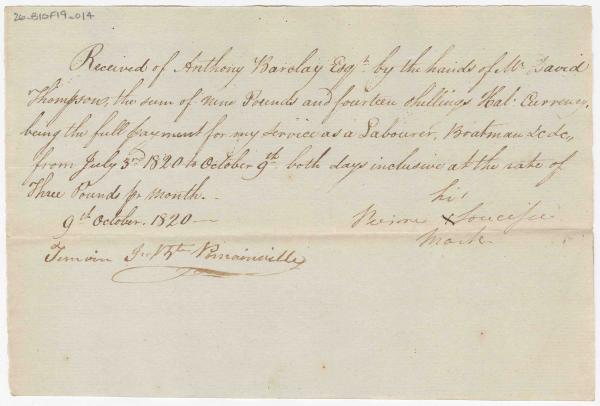 26-B10F19-014
Received of Anthony Barclay Esqr. by the hands of Mr. David
Thompson, the sum of nine Pounds and fourteen shillings Hal: Currency,
being the full payment for my service as a Labourer, Boatman &c &c,,
from July 3rd 1820 to October 9th. both days inclusive at the rate of
Three Pounds pr month.
9th October. 1820
his
Pierre X Soucisse
Mark
Temoin Jn Bte Pomainville